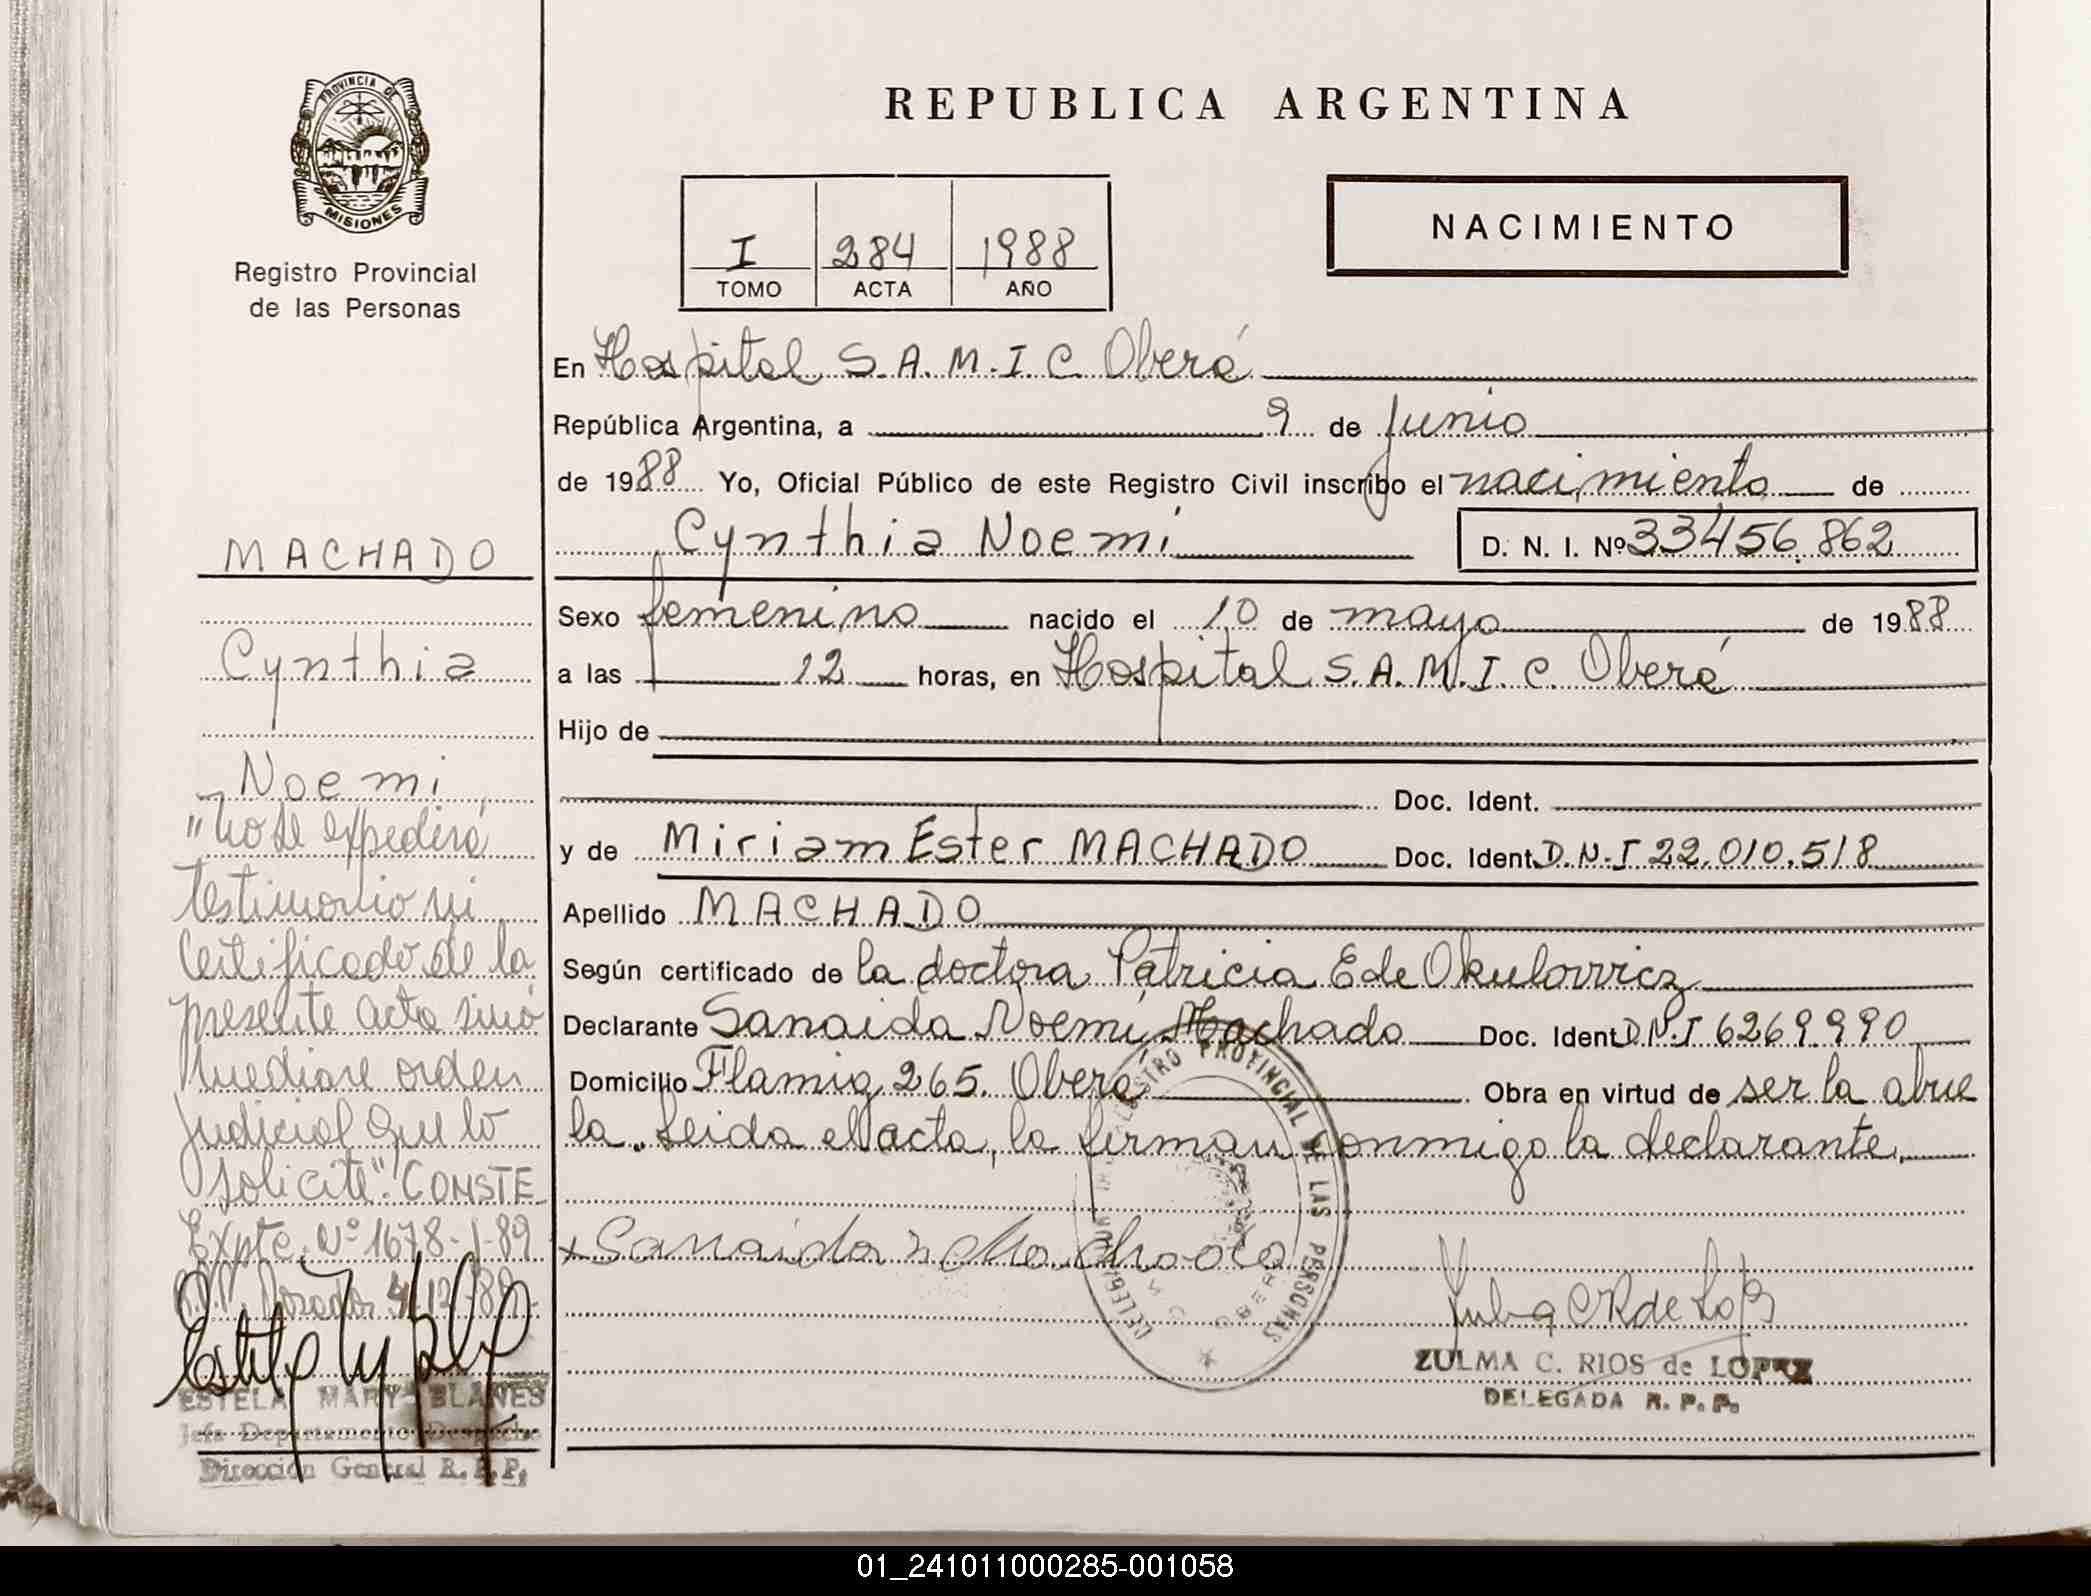 PROVINCIA DE
MISIONES
Registro Provincial
de las Personas
REPUBLICA ARGENTINA
I 284 1988
TOMO ACTA AÑO
NACIMIENTO
En Hospital S.A.M.I.C. Oberá
República Argentina, a 9 de junio
de 1988 Yo, Oficial Público de este Registro Civil inscribo el nacimiento de
Cynthia Noemi D. N. I. Nº 33456.862
Sexo femenino nacido el 10 de mayo de 1988
a las 12 horas, en Hospital S.A.M.I.C. Oberá
Hijo de
Doc. Ident.
y de Miriam Ester MACHADO Doc. Ident. D.N.I 22.010.518
Apellido MACHADO
Según certificado de la doctora Patricia E de Okulovvicz
Declarante Sanaida Noemi Machado Doc. Ident D.N.I 6269990
Domicilio Flamig 265. Oberá Obra en virtud de ser la abue
la. Leida el acta, la firman conmigo la declarante.
x Sanaida n Machado
ZULMA C. RIOS de LOPEZ
DELEGADA R. P. P.
REGISTRO PROVINCIAL DE LAS PERSONAS
MACHADO
Cynthia
Noemi
"No se expedirá
testimonio ni
certificado de la
presente acta sinó
mediare orden
judicial que lo
solicite". CONSTE
Expte. Nº 1678-1-89
Posadas 4/12/89
ESTELA MARY BLANES
Jefa Departamento Despacho
Dirección General R. P. P.
01_241011000285-001058